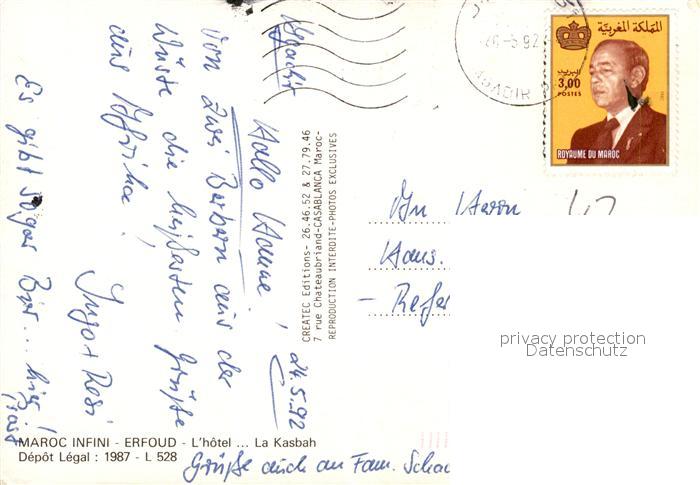 Hallo Hanne!
24.5.92
von zwei Barbarn aus der
Wüste die heißesten Grüße
aus Afrika!
Ingo + Resi
Es gibt sogar Bier... hier!
Prost
Grüße auch an Fam. Scha
CREATEC Editions- 26.46.52 & 27.79.46
7 rue Chateaubriand-CASABLANCA Maroc-
REPRODUCTION INTERDITE-PHOTOS EXCLUSIVES
26-5-92
AGADIR
المملكة المغربية
البريد
3,00
POSTES
ROYAUME DU MAROC
Hans.
privacy protection
Datenschutz
MAROC INFINI - ERFOUD - L'hôtel ... La Kasbah
Dépôt Légal : 1987 - L 528